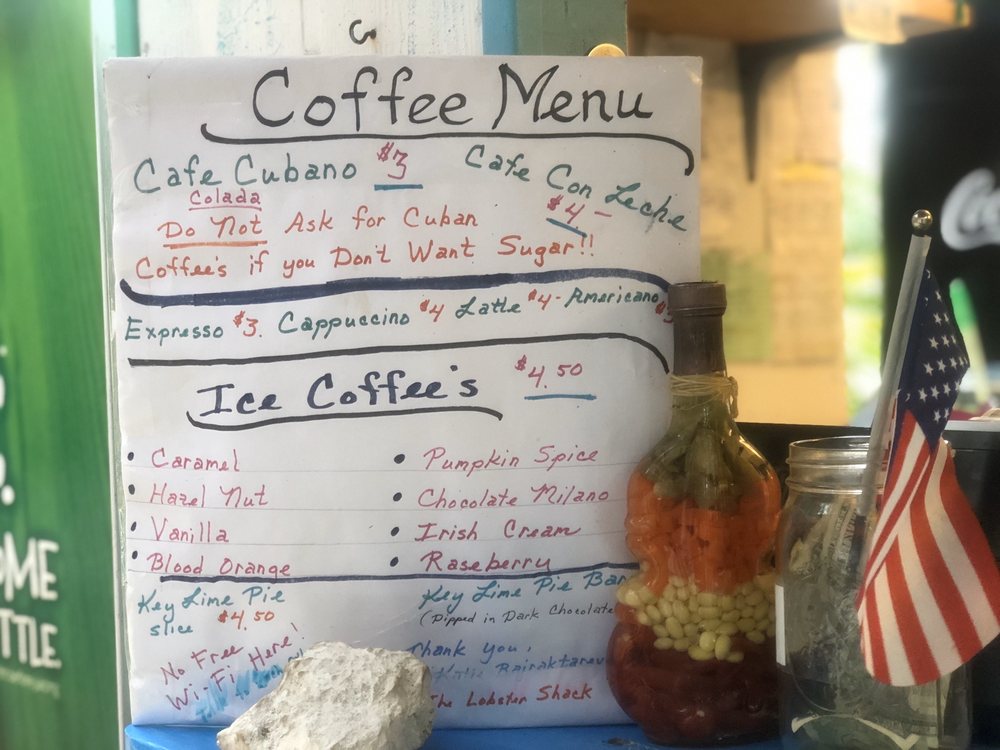 Coffee Menu
Cafe Cubano $3
Cafe Con Leche
$4-
Colada
Do Not Ask for Cuban
Coffee's if you Don't Want Sugar!!
Expresso $3. Cappuccino $4 Latte $4- Americano $3
Ice Coffee's $4.50
• Caramel
• Hazel Nut
• Vanilla
• Blood Orange
• Pumpkin Spice
• Chocolate Milano
• Irish Cream
• Raseberry
Key Lime Pie
slice $4.50
Key Lime Pie Bar
(Dipped in Dark Chocolate
No Free
Wi-Fi Here!
Thank you,
Katie
The Lobster Shack
OME
TTLE.
Co